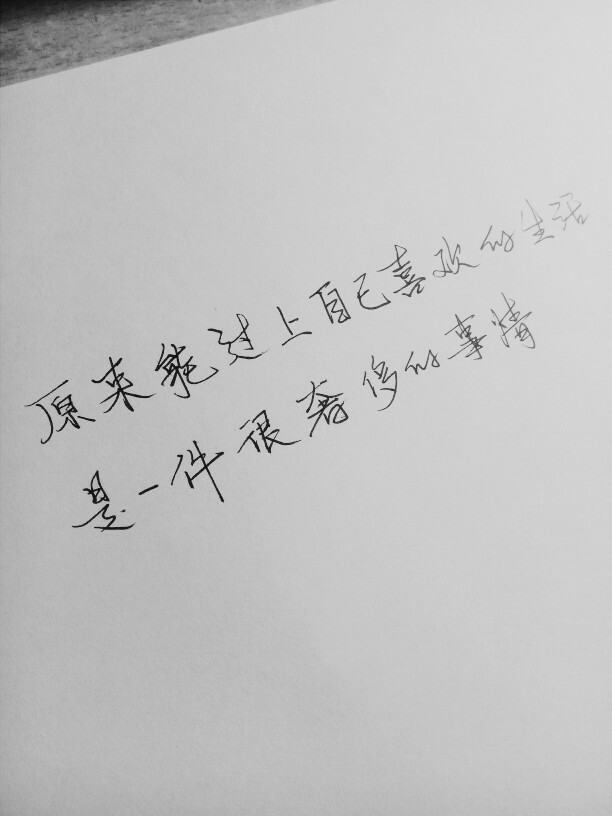 原来能过上自己喜欢的生活
是一件很奢侈的事情